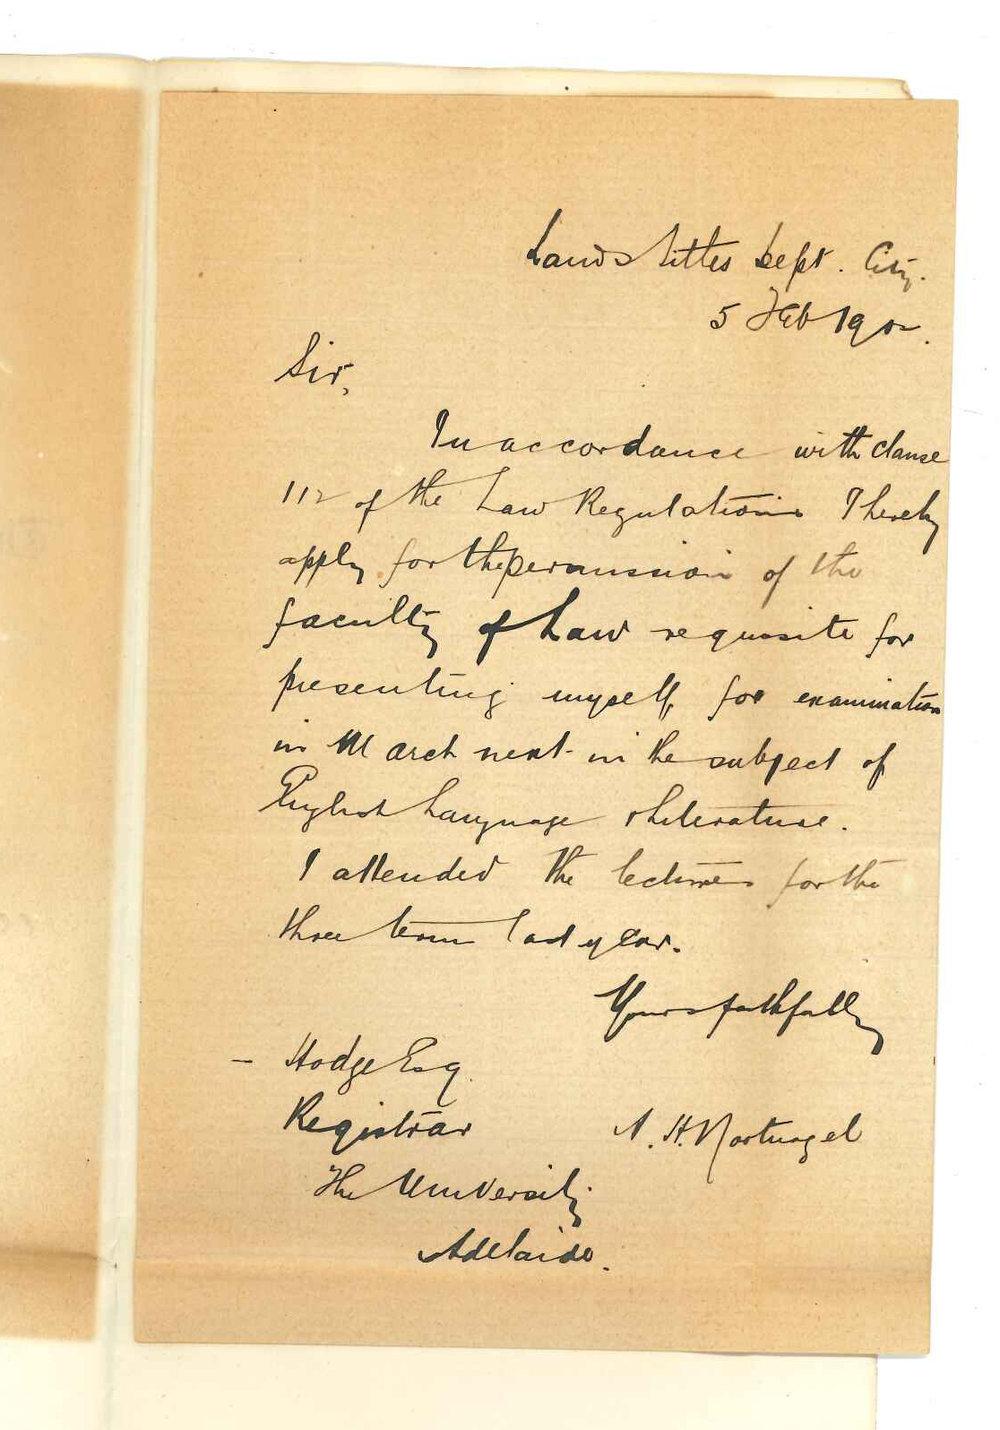 Lands Titles Dept. City.
5 Feb 1902.
Sir,
In accordance with clause
112 of the Law Regulations I hereby
apply for the permission of the
faculty of Law requisite for
presenting myself for examination
in March next in the subject of
English Language & Literature.
I attended the lectures for the
three terms last year.
Yours faithfully
— Hodge Esq.
Registrar
A. H.
The University
Adelaide.